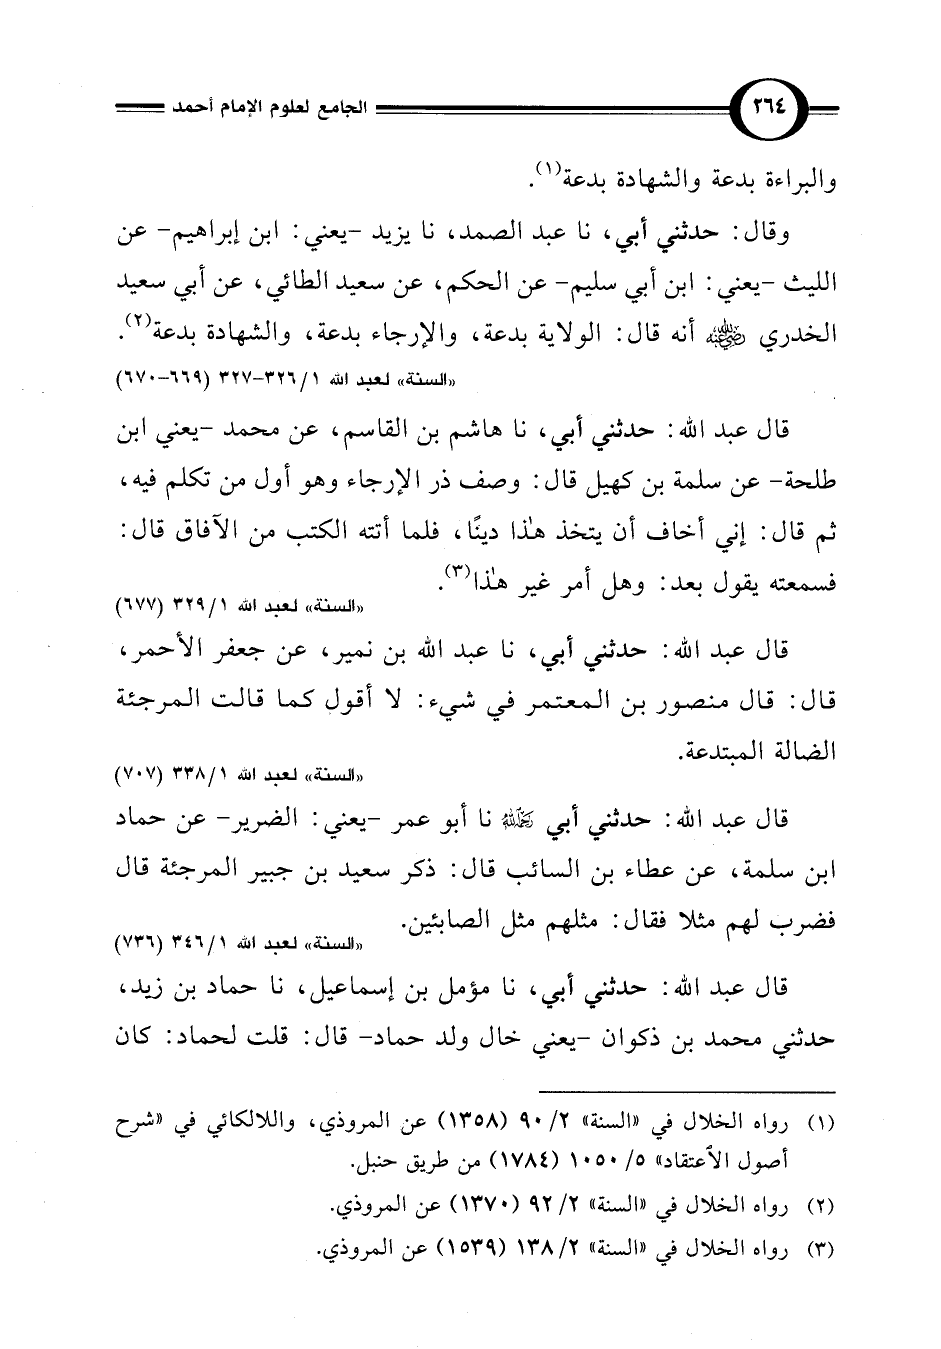 ٢٦٤ الجامع لعلوم الإمام أحمد
والبراءة بدعة والشهادة بدعة(١).
وقال: حدثني أبي، نا عبد الصمد، نا يزيد -يعني: ابن إبراهيم- عن
الليث -يعني: ابن أبي سليم- عن الحكم، عن سعيد الطائي، عن أبي سعيد
الخدري رضي الله عنه أنه قال: الولاية بدعة، والإرجاء بدعة، والشهادة بدعة(٢).
«السنة» لعبد الله ١/ ٣٢٦-٣٢٧ (٦٦٩-٦٧٠)
قال عبد الله: حدثني أبي، نا هاشم بن القاسم، عن محمد -يعني ابن
طلحة- عن سلمة بن كهيل قال: وصف ذر الإرجاء وهو أول من تكلم فيه،
ثم قال: إني أخاف أن يتخذ هذا دينًا، فلما أتته الكتب من الآفاق قال:
فسمعته يقول بعد: وهل أمر غير هذا(٣).
«السنة» لعبد الله ١/ ٣٢٩ (٦٧٧)
قال عبد الله: حدثني أبي، نا عبد الله بن نمير، عن جعفر الأحمر،
قال: قال منصور بن المعتمر في شيء: لا أقول كما قالت المرجئة
الضالة المبتدعة.
«السنة» لعبد الله ١/ ٣٣٨ (٧٠٧)
قال عبد الله: حدثني أبي رحمه الله نا أبو عمر -يعني: الضرير- عن حماد
ابن سلمة، عن عطاء بن السائب قال: ذكر سعيد بن جبير المرجئة قال
فضرب لهم مثلا فقال: مثلهم مثل الصابئين.
«السنة» لعبد الله ١/ ٣٤٦ (٧٣٦)
قال عبد الله: حدثني أبي، نا مؤمل بن إسماعيل، نا حماد بن زيد،
حدثني محمد بن ذكوان -يعني خال ولد حماد- قال: قلت لحماد: كان
(١) رواه الخلال في «السنة» ٢/ ٩٠ (١٣٥٨) عن المروذي، واللالكائي في «شرح
أصول الأعتقاد» ٥/ ١٠٥٠ (١٧٨٤) من طريق حنبل.
(٢) رواه الخلال في «السنة» ٢/ ٩٢ (١٣٧٠) عن المروذي.
(٣) رواه الخلال في «السنة» ٢/ ١٣٨ (١٥٣٩) عن المروذي.